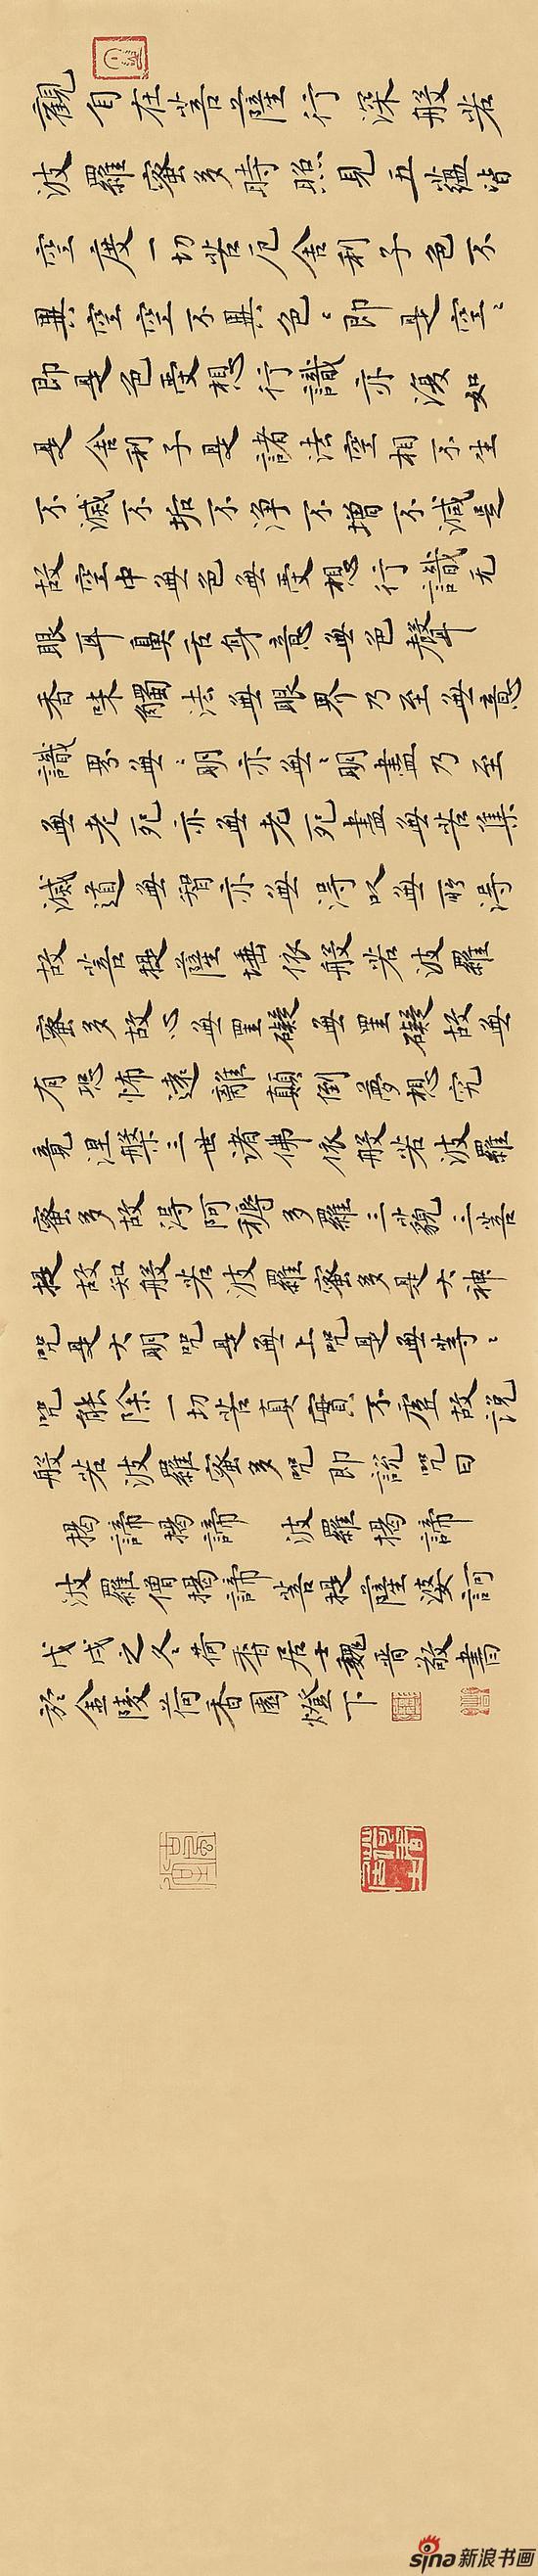 觀自在菩薩行深般若
波羅蜜多時照見五蘊皆
空度一切苦厄舍利子色不
異空空不異色〻即是空〻
即是色受想行識亦復如
是舍利子是諸法空相不生
不滅不垢不淨不增不減是
故空中無色無受想行識无
眼耳鼻舌身意無色聲
香味觸法無眼界乃至無意
識界無〻明亦無〻明盡乃至
無老死亦無老死盡無苦集
滅道無智亦無得以無所得
故菩提薩埵依般若波羅
蜜多故心無罣礙無罣礙故無
有恐怖遠離顛倒夢想究
竟涅槃三世诸佛依般若波羅
蜜多故得阿耨多羅三藐三菩
提故知般若波羅蜜多是大神
咒是大明咒是無上咒是無等〻
咒能除一切苦真實不虛故说
般若波羅蜜多咒即說咒曰
揭諦揭諦 波羅揭諦
波羅僧揭諦 菩提薩婆訶
戊戌之冬荷香居士魏晋敬書
於金陵荷香園燈下
sina新浪书画